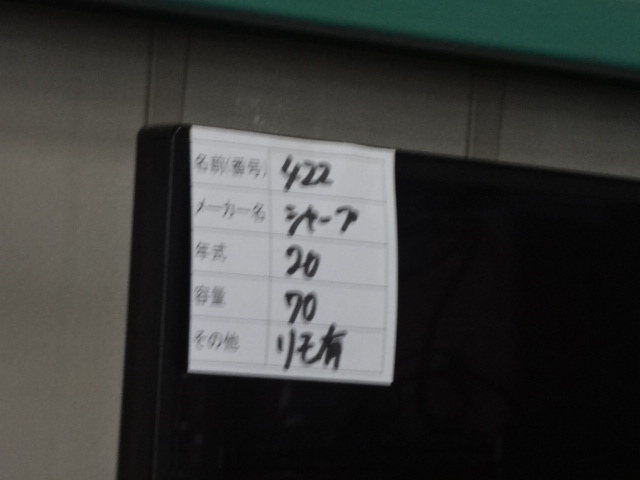 名前(番号) 422
メーカー名 シャープ
年式 20
容量 70
その他 リモ有